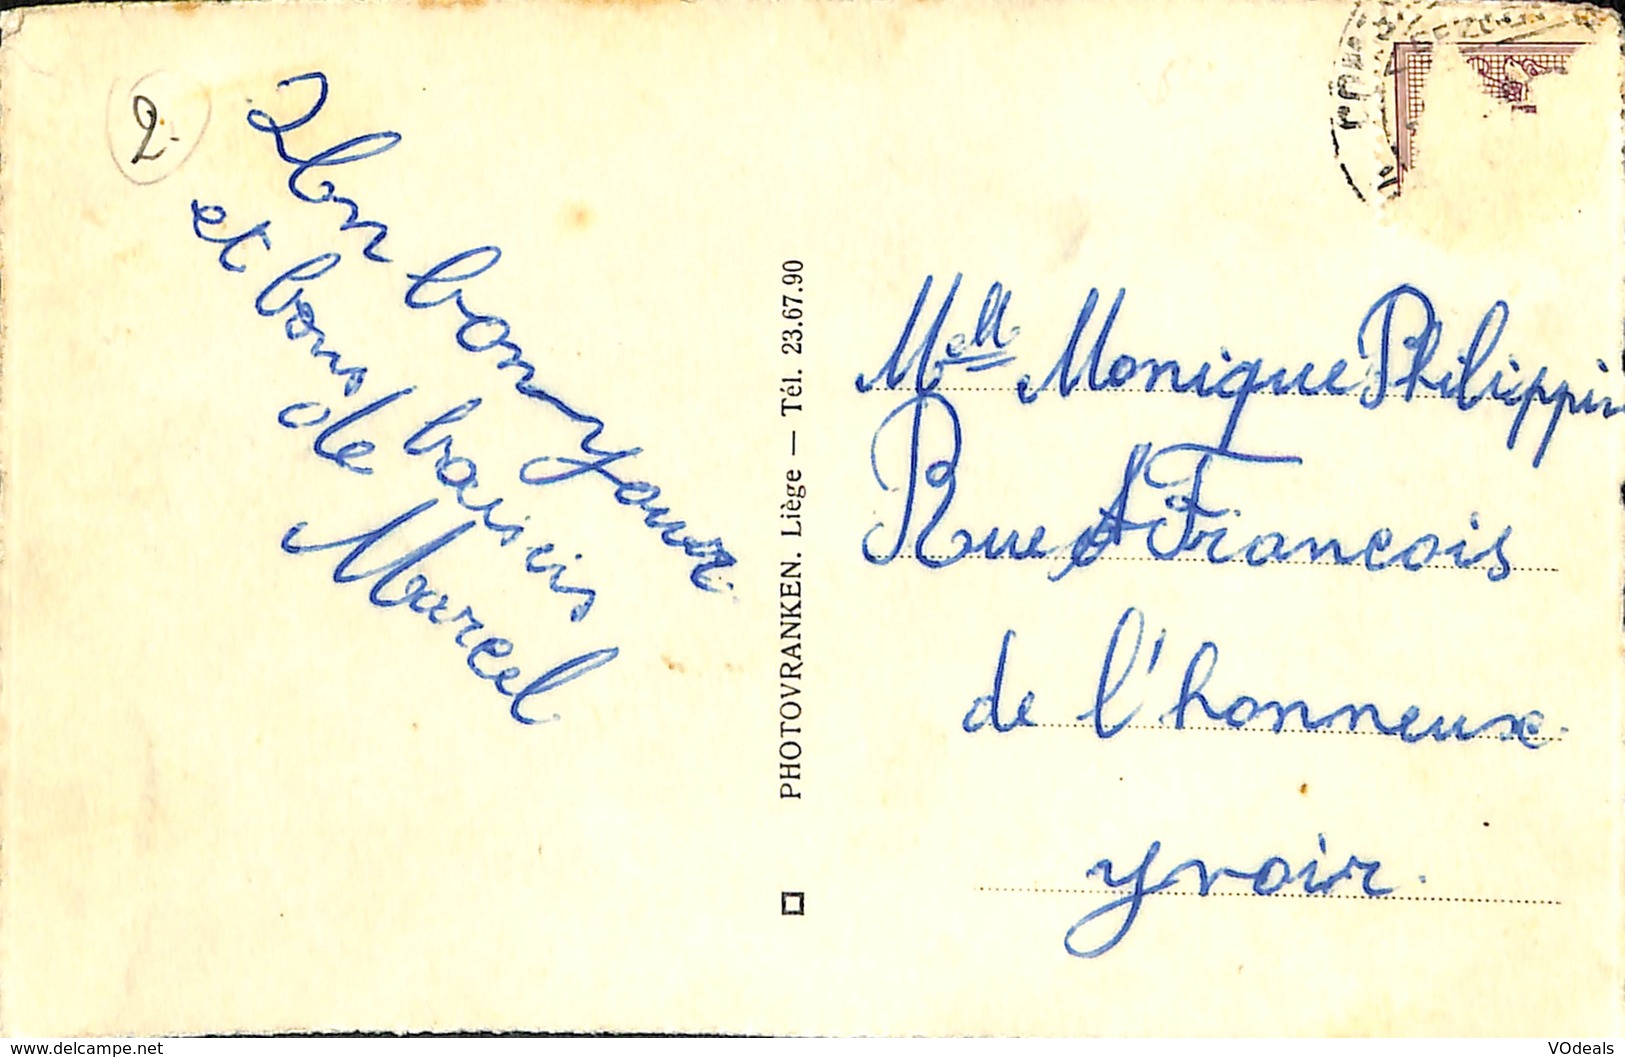 2.
Un bon bonyour
et bons baisirs
de
Marcel
PHOTOVRANKEN. Liège — Tél. 23.67.90
Mell Monique Philippin
Rue St Francois
de l'honneux
yvoir.
www.delcampe.net
VOdeals